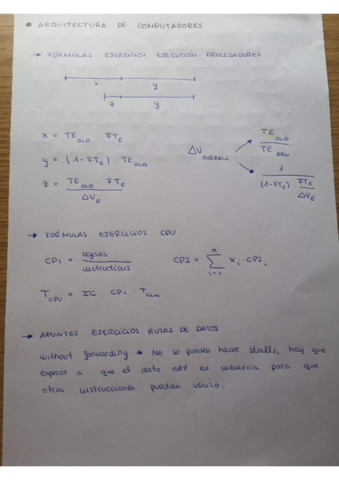 ARQUITECTURA DE COMPUTADORES
→ FÓRMULAS EJERCICIOS EJECUCIÓN PROCESADORES
x y
z y
x = TE OLD · FT E
y = (1-FT E) · TE OLD
z = TE OLD · FT E / ΔV E
ΔV OVERALL
TE OLD / TE NEW
1 / (1-FT E) FT E / ΔV E
→ FÓRMULAS EJERCICIOS CPU
CPI = / instructions
CPI = Σ i=0 n x i · CPI i
T CPU = IC · CPI · T CLK
→ APUNTES EJERCICIOS RUTAS DE DATOS
without forwarding → No se pueden hacer stalls, hay que
esperar a que el dato esté en memoria para que
otras instrucciones puedan usarlo.